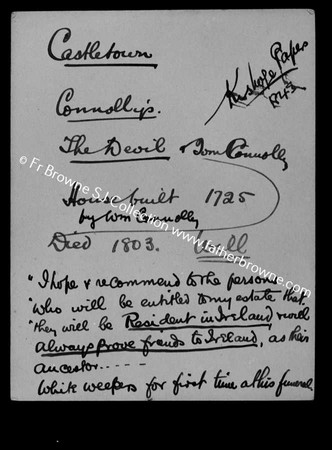 Castletown
Connolly's.
The Devil & Tom Connolly
House built 1725
by Wm Connolly
Died 1803. Will
"I hope & recommend to the persons
"who will be entitled to my estate that
"they will be Resident in Ireland & will
always prove friends to Ireland, as their
ancestor.....
White weepers for first time at his funeral.
© Fr Browne S.J. Collection www.fatherbrowne.com